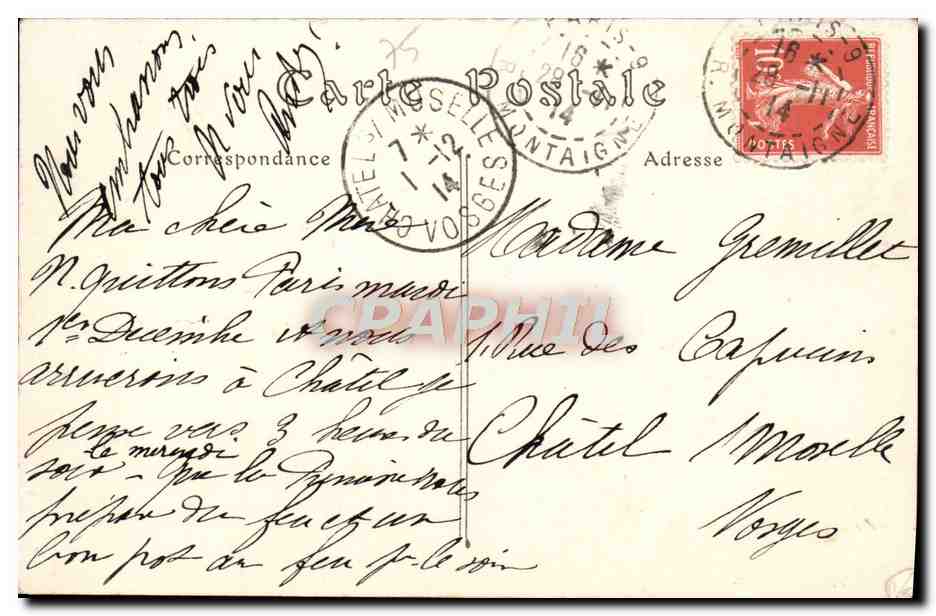 Nous vous
embrassons
tous trois
N vous
75
Carte Postale
Correspondance
Adresse
CHATEL S/ MOSELLE
7 * -12
1 14
VOSGES
PARIS-9
16 *
28 -11
14
R. MONTAIGNE
PARIS-9
16 *
28 -11
14
R. MONTAIGNE
REPUBLIQUE FRANÇAISE
10
POSTES
Ma chère Mère
N. quittons Paris mardi
1er Décembre et nous
arriverons à Châtel je
pense vers 3 heures du
le mercredi
soir - que la nous
prépare du feu et un
bon pot au feu pr le soir
Madame Gremillet
1, Rue des Capucins
Châtel s/Moselle
Vosges
CPAPHIL